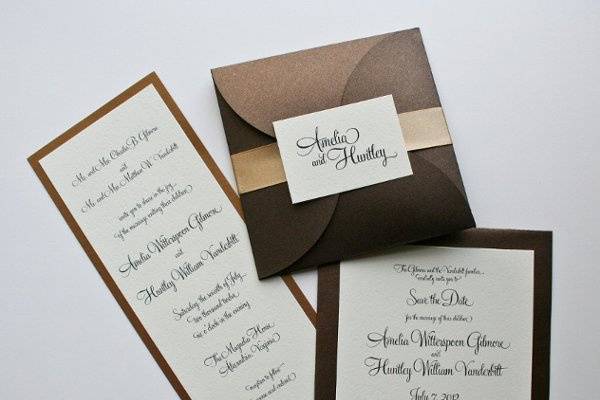 Mr. and Mrs. Charles B. Gilmore
and
Mr. and Mrs. Matthew W. Vanderbilt
invite you to share in the joy
of the marriage uniting their children
Amelia Witterspoon Gilmore
and
Huntley William Vanderbilt
Saturday, the seventh of July
two thousand twelve
six o'clock in the evening
The Magnolia House
Alexandria, Virginia
reception to follow
Amelia
and Huntley
The Gilmore and the Vanderbilt families
cordially invite you to
Save the Date
for the marriage of their children
Amelia Witterspoon Gilmore
and
Huntley William Vanderbilt
July 7, 2012